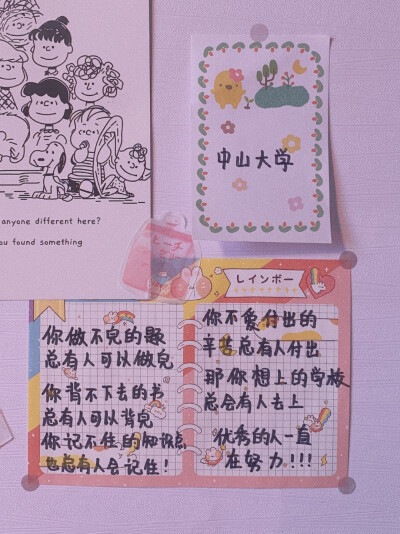 anyone different here?
ou found something
中山大学
ピーチ
レインボー
你做不完的题
总有人可以做完
你背不下去的书
总有人可以背完
你记不住的知识点
也总有人会记住！
你不爱付出的
辛苦总有人付出
那你想上的学校
总会有人去上
优秀的人一直
在努力！！！